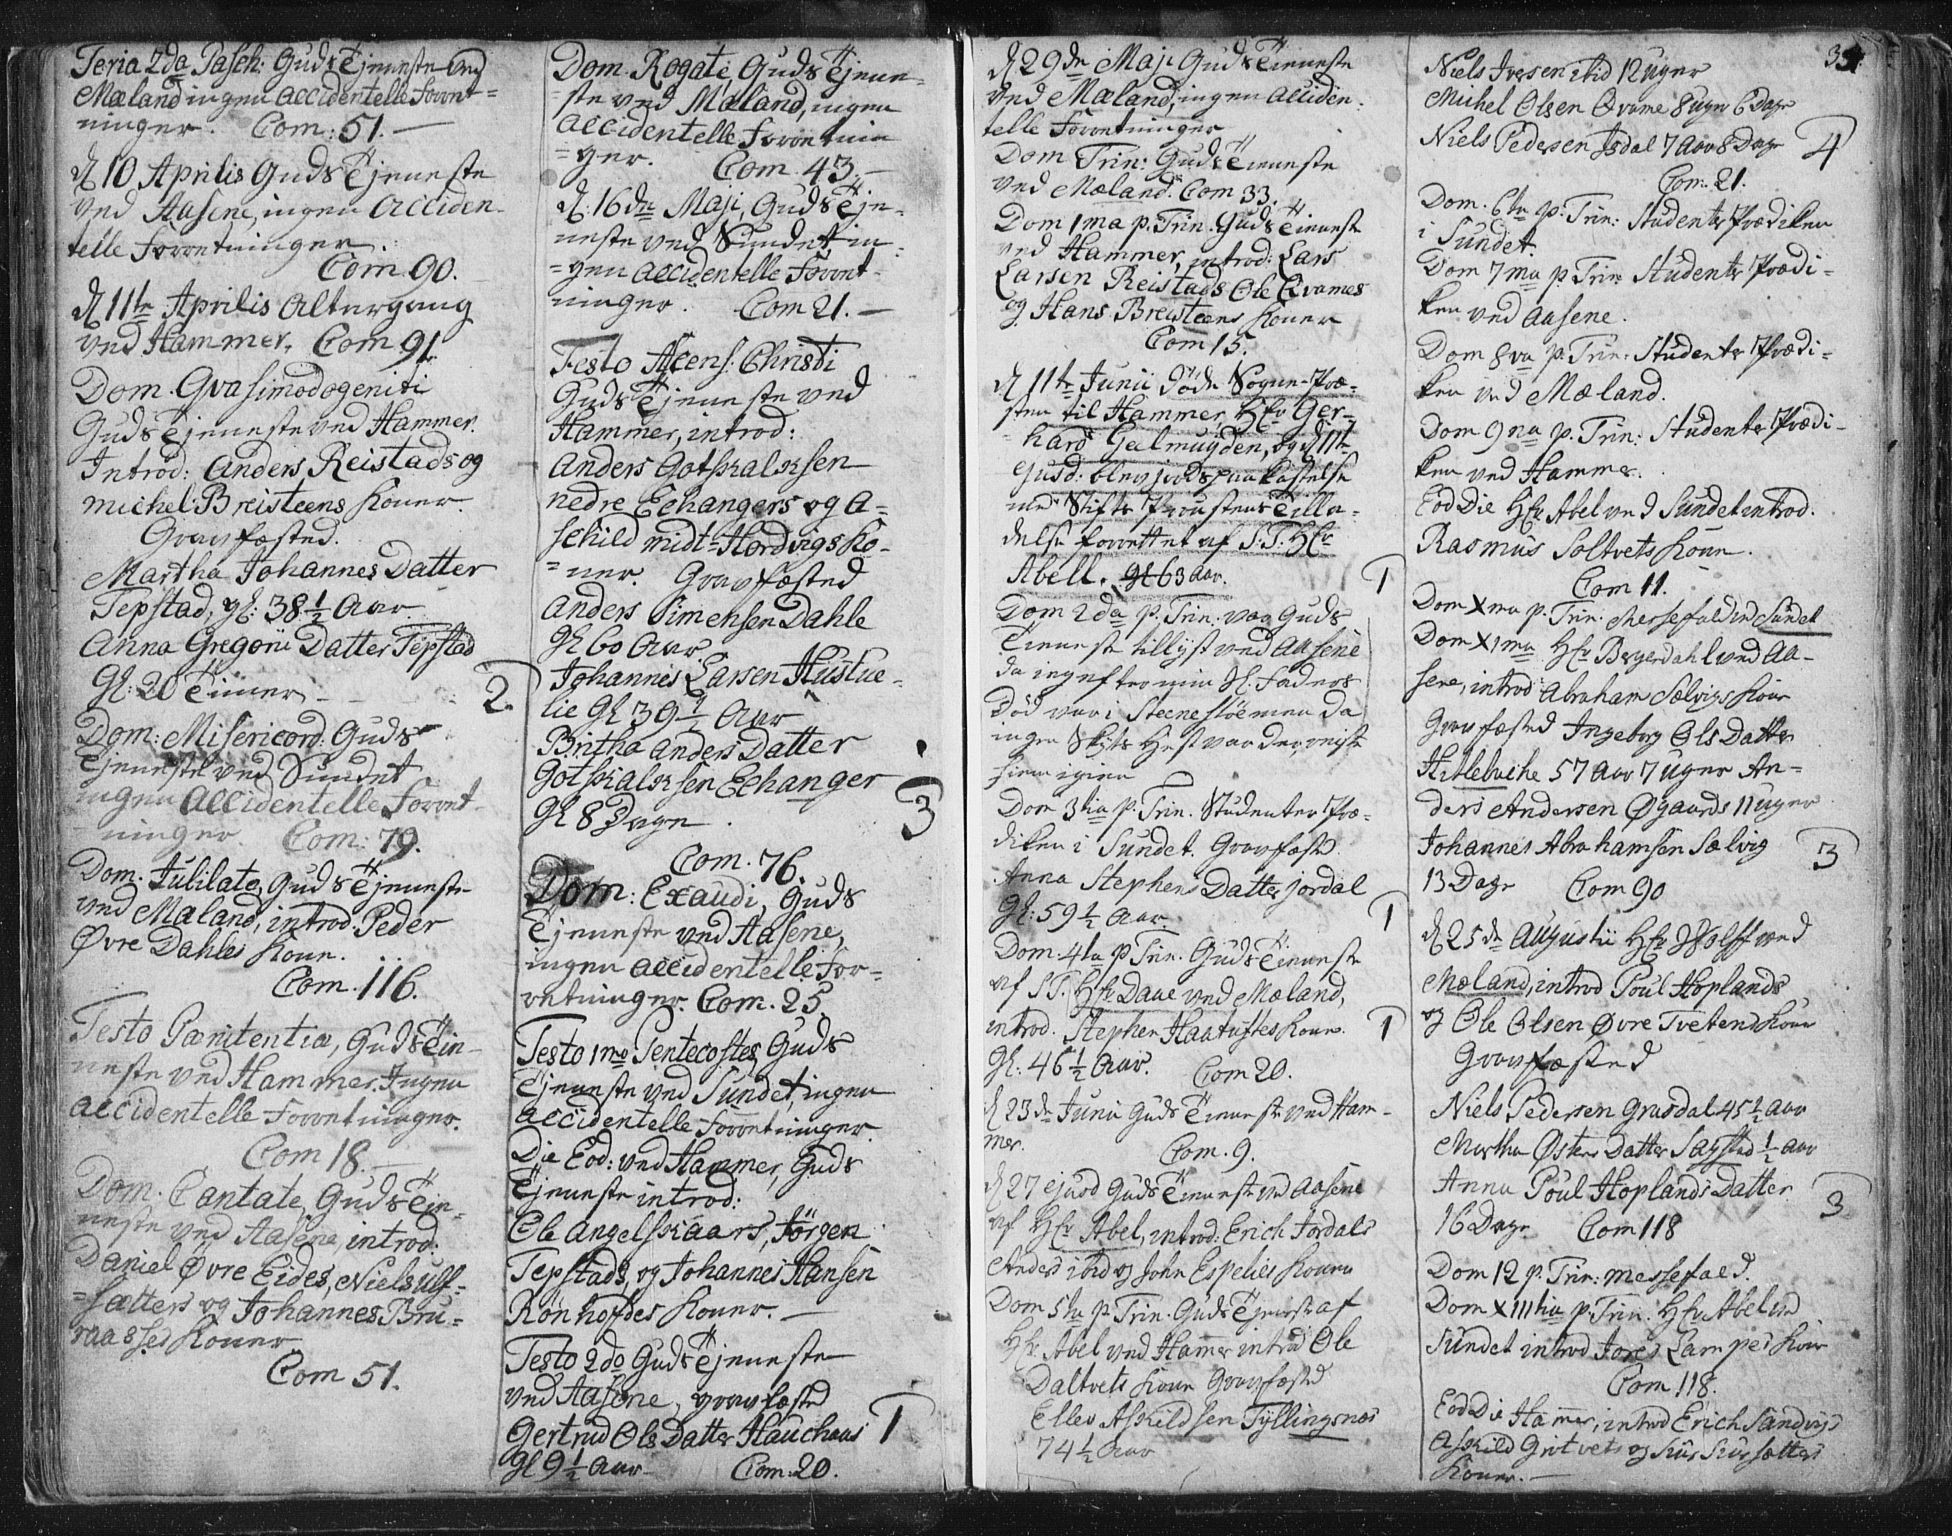 Feria 2da Pasch: Guds Tjeneste ved
Mæland ingen accidentelle forret-
ninger. Com: 51.
d 10 Aprilis Guds Tjeneste
ved Aasene, ingen acciden-
telle forretninger.
Com. 90.
d 11te Aprilis Altergang
ved Hammer. Com 91.
Dom. Qvasimodogeniti
Guds Tjeneste ved Hammer.
Introd: Anders Reistads og
Michel Breisteens Koner.
Gravfæsted.
Martha Johannes Datter
Tepstad, gl: 38 1/2 Aar
Anna Gregorii Datter Tepstad
Gl: 20 Timer
2.
Dom: Misericord. Guds
Tjeneste ved Sundet
ingen accidentelle forret-
ninger. Com: 79.
Dom. Jubilate, Guds Tjeneste
ved Mæland, introd: Peder
Øvre Dahles Kone.
Com. 116.
Festo Pænitentiæ, Guds Tie-
neste ved Hammer. Ingen
accidentelle forretninger.
Com 18.
Dom. Cantate, Guds Tie-
neste ved Aasene, introd:
Daniel Øvre Eides, Niels Ulf-
=sætters og Johannes Bru-
raasses Koner
Com 51.
Dom. Rogate, Guds Tjene-
=ste ved Mæland, ingen
accidentelle forretnin
=ger. Com. 43.
d. 16de Maji, Guds Tje-
neste ved Sundet in-
=gen accidentelle forret-
ninger. Com 21.
Festo Ascens: Christi
Guds Tjeneste ved
Hammer, introd:
Anders Gotskalksen
nedre Echangers og A-
schild midt-Hordvigs Ko-
=ner. Gravfæsted
Anders Simensen Dahle
Gl 60 Aar.
Johannes Larsen Hustve-
lie Gl 39 1/2 Aar
Britha Anders Datter
Gotskalksen Echanger
Gl 8 Dage.
3
Com. 76.
Dom: Exaudi, Guds
Tjeneste ved Aasene,
ingen accidentelle For-
retninger. Com. 25.
Festo 1mo Pentecostes, Guds
Tjeneste ved Sundet, ingen
accidentelle forretninger.
Die Eod: ved Hammer, Guds
Tjeneste introd:
Ole Angelskaars, Jörgen
Tepstads, og Johannes Hansen
Rönhofdes Koner.
Festo 2do Guds Tjeneste
ved Aasene, gravfæste
Gertrud Ols Datter Hauchaas
1
Gl 9 1/2 Aar Com. 20.
d 29de Maji Guds Tieneste
ved Mæland, ingen acciden-
telle forretninger
Dom Trin: Guds Tieneste
ved Mæland. Com 33.
Dom 1ma p. Trin. Guds Tieneste
ved Hammer, introd: Lars
Larsen Reistads Ole Qvames
og Hans Breisteens Koner
Com 15.
d 11te Junii döde Sogne-Præ-
sten til Hammer, Hr Ger-
hard Geelmuyden, og d 11te
ejusd: blev jords paa kastelse
med Stifts Proustens Tilla-
delse forrettet af S:T: Hr
Abell. gl 63 Aar.
1
Dom 2da p. Trin. var Guds
Tieneste tillyst ved Aasene
da ieg efter min Sl: Faders
Död var i Steenestöe men da
ingen Skyts Hest var der reiste
hiem igien
Dom 3tia p. Trin. Studenter Præ-
diken i Sundet. Gravfæste
Anna Stephens Datter Jordal
Gl: 59 1/2 Aar.
1
Dom. 4ta p Trin. Guds Tieneste
af S.T. Hr Daae ved Mæland,
introd. Stephen Haatuftes Kone.
1
Gl: 46 1/2 Aar. Com 20.
d 23de Junii Guds Tieneste ved Ham-
mer. Com. 9.
d 27 ejusd Guds Tieneste ved Aasene
af Hr Abel, introd: Erich Jordals
Anders ibid og John Espelies Koner
Dom 5ta p Trin. Guds Tjeneste af
Hr Abel ved Hamer introd Ole
Daltvets Kone Gravfæsted
Ellev Askildsen Tyllingsnæs
74 1/2 Aar
34
Niels Iversen ibid 12 uger
Michel Olsen Qvame 8 uger 6 Dage
Niels Pedersen Isdal 7 Aar 8 Dage
4
Com. 21.
Dom. 6ta p. Trin: Studenter Prædiken
i Sundet.
Dom 7ma p Trin: Studenter Prædi-
ken ved Aasene.
Dom 8va p. Trin: Studenter Prædi-
ken ved Mæland.
Dom 9na p. Trin: Studenter Prædi-
ken ved Hammer.
Eod Die Hr Abel ved Sundet introd.
Rasmus Soltvets Kone.
Com 11.
Dom Xma p. Trin. Messefald ved Sundet
Dom XIma Hr Bergerdahl ved Aa-
sene, introd Abraham Sælvigs Kone
Gravfæsted Ingeborg Ols Datter
Hitleviche 57 Aar 7 uger An-
ders Andersen Øgaards 11 uger
Johannes Abrahamsen Sælvig
3
13 Dage Com 90
d 25de Augustii Hr Wolff ved
Mæland, introd Poul Hoplands
og Ole Olsen Øvre Tvetens Kone
Gravfæsted
Niels Pedersen Grasdal 45 1/2 Aar
Martha Østens Datter Sagstad 1/2 Aar
Anna Poul Hoplands Datter
3
16 Dage Com 118
Dom 12 p. Trin: messefald.
Dom XIIItia p. Trin. Hr Abel ved
Sundet introd Lampes Kone
Com 118.
Eod Die Hamer, introd Erich Sandvigs
Askild Grotvets og
Koner.